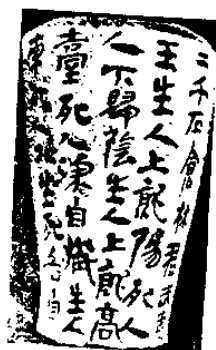 二千石倉林君武夷
王生人上就陽死人
下歸陰生人上就高
臺死人深自藏生人
生死各自